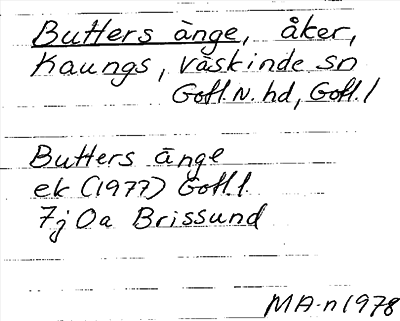 Butters änge, åker,
Kaungs, Väskinde sn
Gotl. N. hd, Gotl. l
Butters änge
ek (1977) Gotl. l.
7j 0a Brissund
MA-n 1978